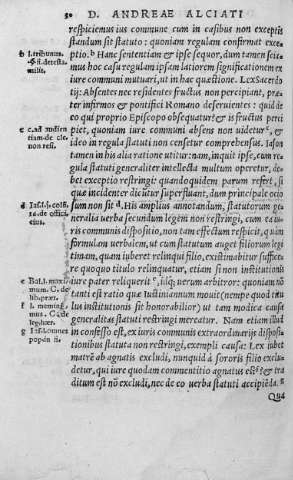 30 D. ANDREAE ALCIATI
respicienius ius commune cum in casibus non exceptis
standum sit statuto : quoniam regulam confirmat exce-
ptio.ᵇ Hanc sententiam & ipse sequor, dum tamen scia-
mus hoc casu regulam ipsam latiorem significationem ex
iure communi mutuari, ut in hac quæstione. Lex Sacerdo-
tij: Absentes nec residentes fructus non percipiant, præ-
ter infirmos & pontifici Romano deseruientes : quid de
eo qui proprio Episcopo obsequatur? & is fructus perci
piet, quoniam iure communi absens non uidetur ᶜ, &
ideo in regula statuti non censetur comprehensus. Iason
tamen in his alia ratione utitur: nam, inquit ipse, cum re-
gula statuti generaliter intellecta multum operetur, de-
bet exceptio restringi quandoquidem parum refert, si
quæ incidenter dicuntur superfluant, dum principale ocio
sum non sit ᵈ. His amplius annotandum, statutorum ge-
neralia uerba secundum legem non restringi, cum ea iu-
ris communis dispositio, non tam effectum respicit, quàm
formulam uerbalem, ut cum statutum auget filiorum legi
timam, quam legem si testator relinquat filio, existimabitur suffice-
re quoquo titulo relinquatur, etiam si non institutionis
iure pater reliquerit ᵉ. idque uerum arbitror: quoniam non
tanti est ratio quæ Iustinianum mouit (nempe quod titu
lus institutionis sit honorabilior) ut tam modica causa
generalitas statuti restringi mereatur. Nam etiam illud
in confesso est, ex iuris communis extraordinarijs disposi-
tionibus statuta non restringi, exempli causa: Lex iubet
matrem ab agnatis excludi, nunquid à sororis filio exclu-
detur, qui iure quodam commentitio agnatus est? & tra
ditum est non excludi, nec de eo uerba statuti accipienda. ᵍ
Quæ
b l. tribunus.
§ fi. de testa.
milit.
c c. ad audien
tiam de cle.
non resi.
d
e
f
g